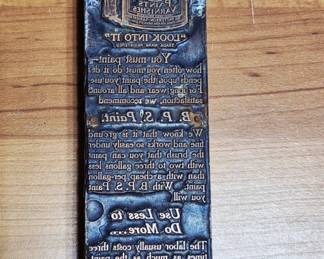 PAINTS
VARNISHES
"LOOK INTO IT"
TRADE MARK REGISTERED
You must paint—
how often you must do it de-
pends upon the paint you use.
For long wear and all around
satisfaction, we recommend
B. P. S. Paint.
We know that it is ground
fine and works so easily under
the brush that you can paint
with two to three gallons less
than with a cheap, per-gallon
paint. With B. P. S. Paint
you will
Use Less to
Do More....
The labor usually costs three
times as much as the paint